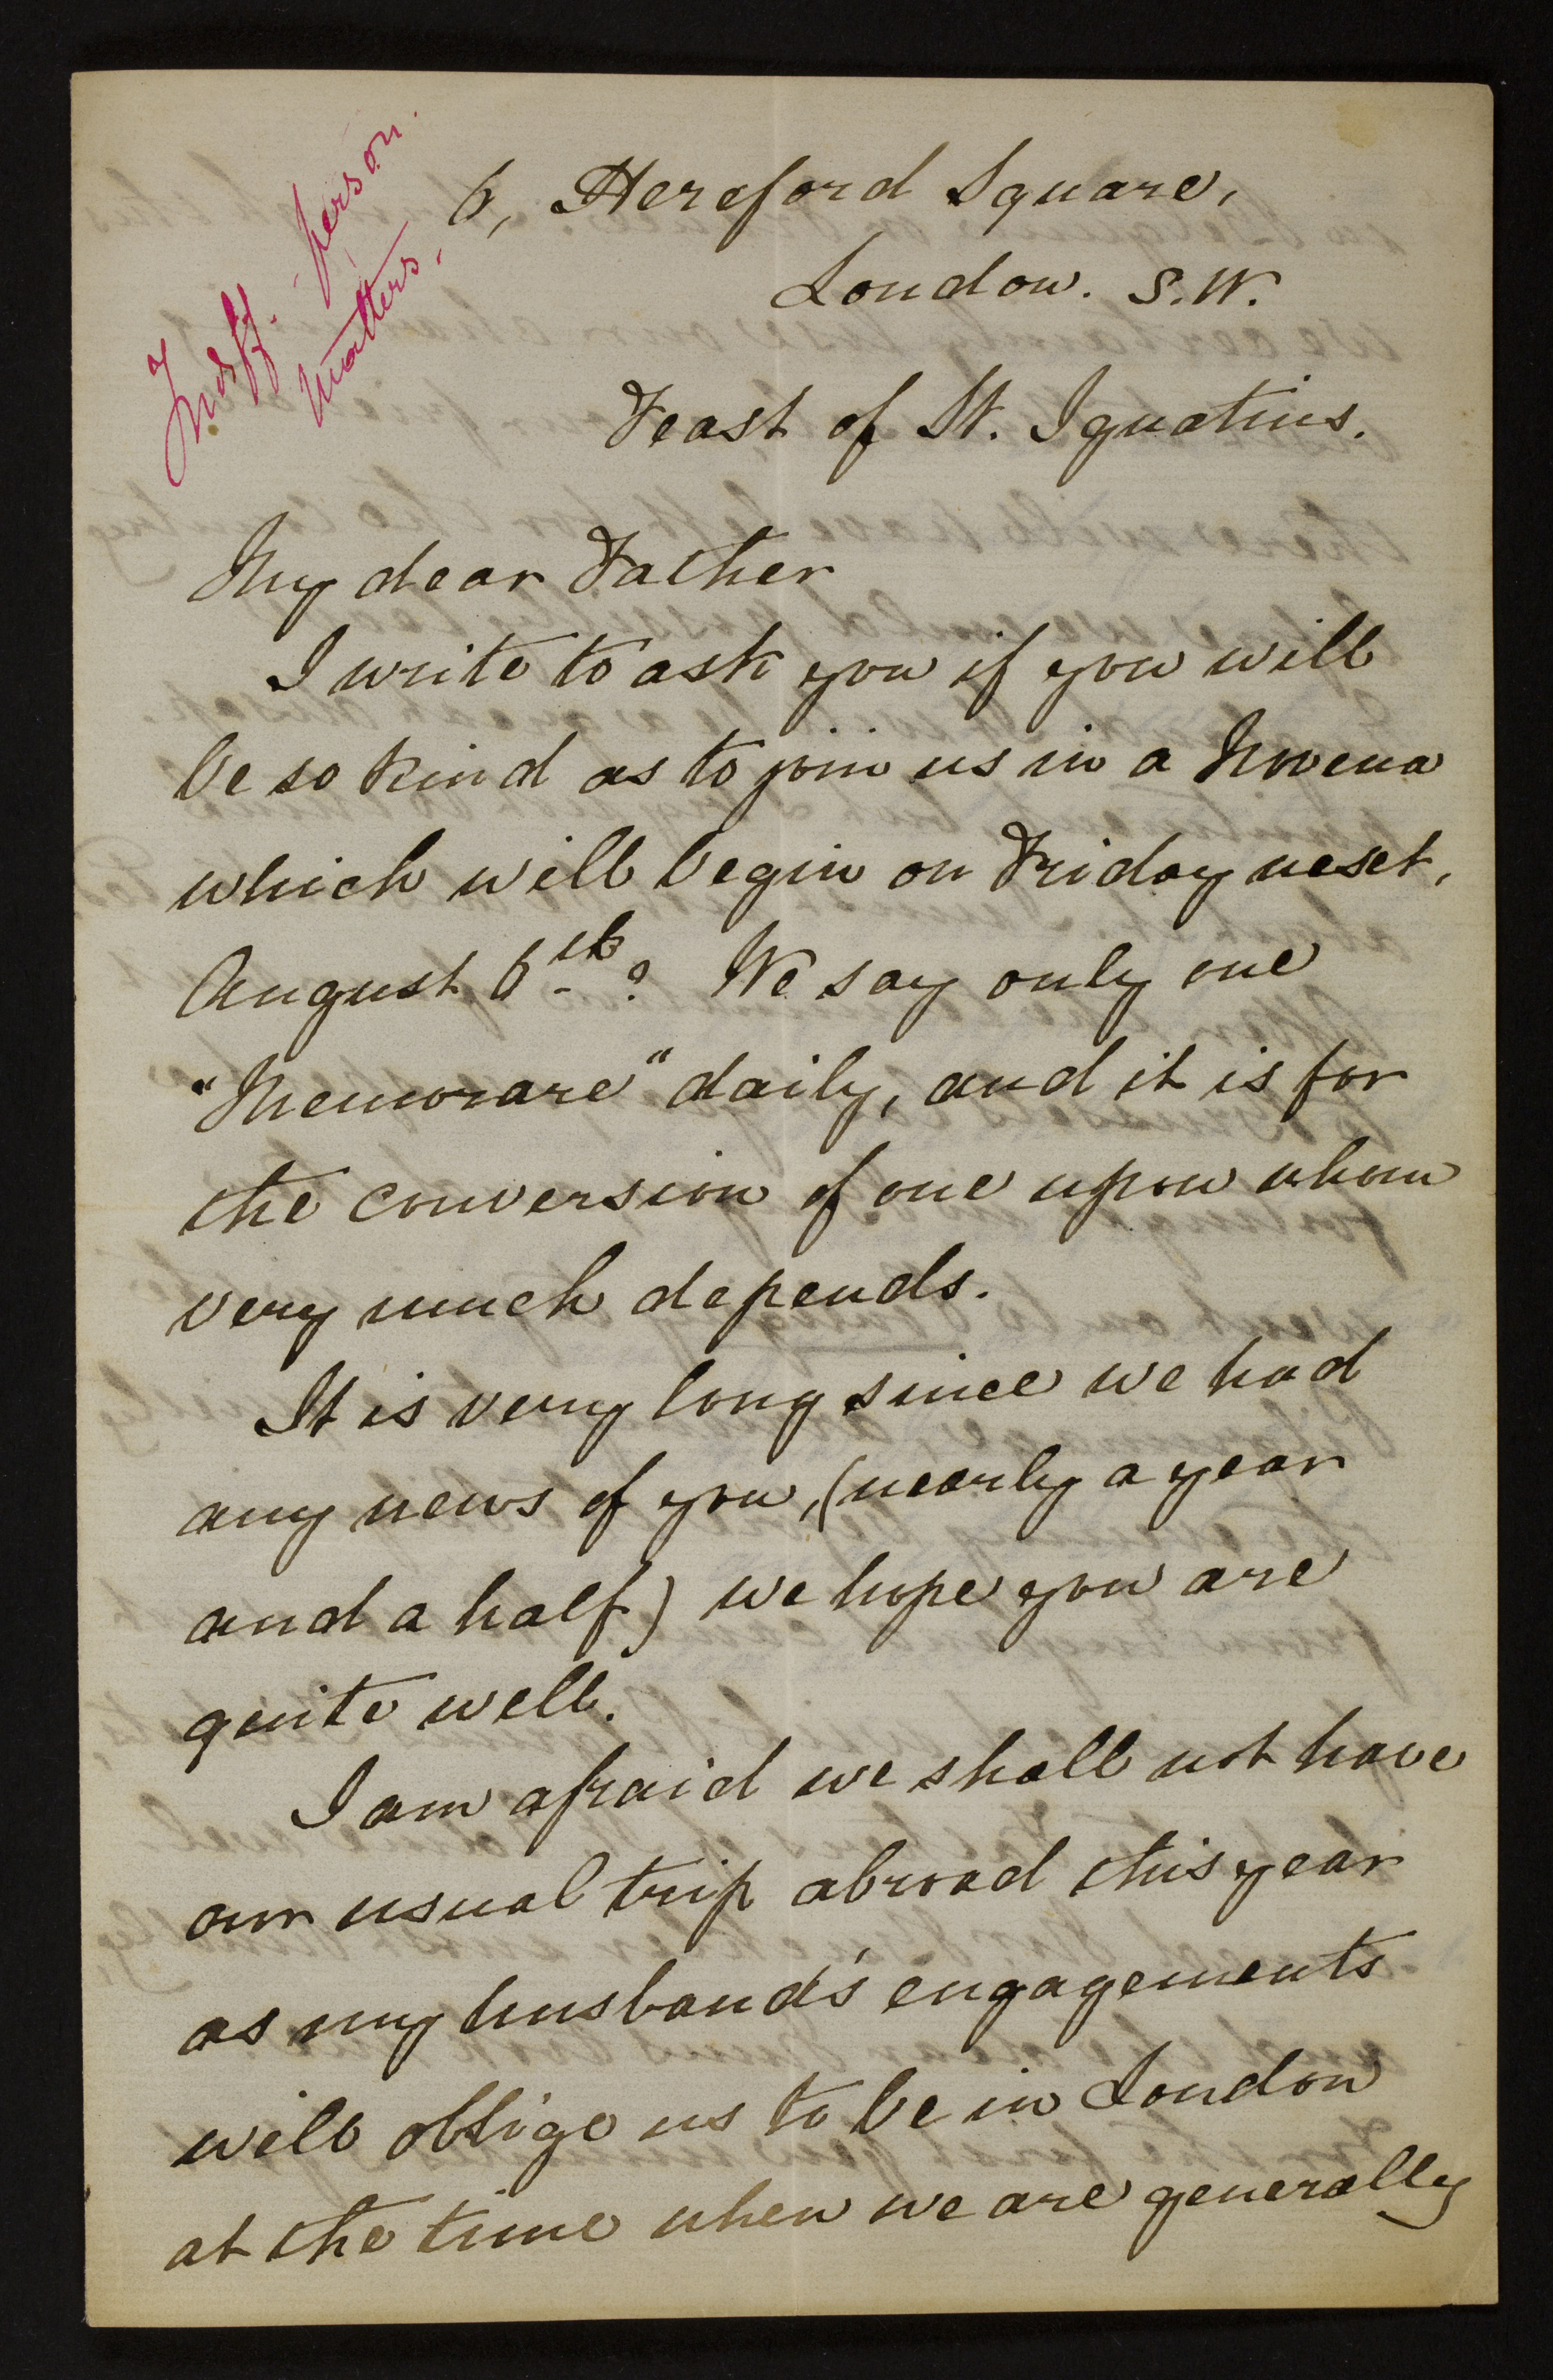 Indiff. person.
matters.
6, Hereford Square,
London. S.W.
Feast of St. Ignatius.
My dear Father
I write to ask you if you will
be so kind as to join us in a Novena
which will begin on Friday next,
August 6th? We say only one
"Memorare" daily, and it is for
the conversion of one upon whom
very much depends.
It is very long since we had
any news of you, (nearly a year
and a half) we hope you are
quite well.
I am afraid we shall not have
our usual trip abroad this year
as my husband's engagements
will oblige us to be in London
at the time when we are generally